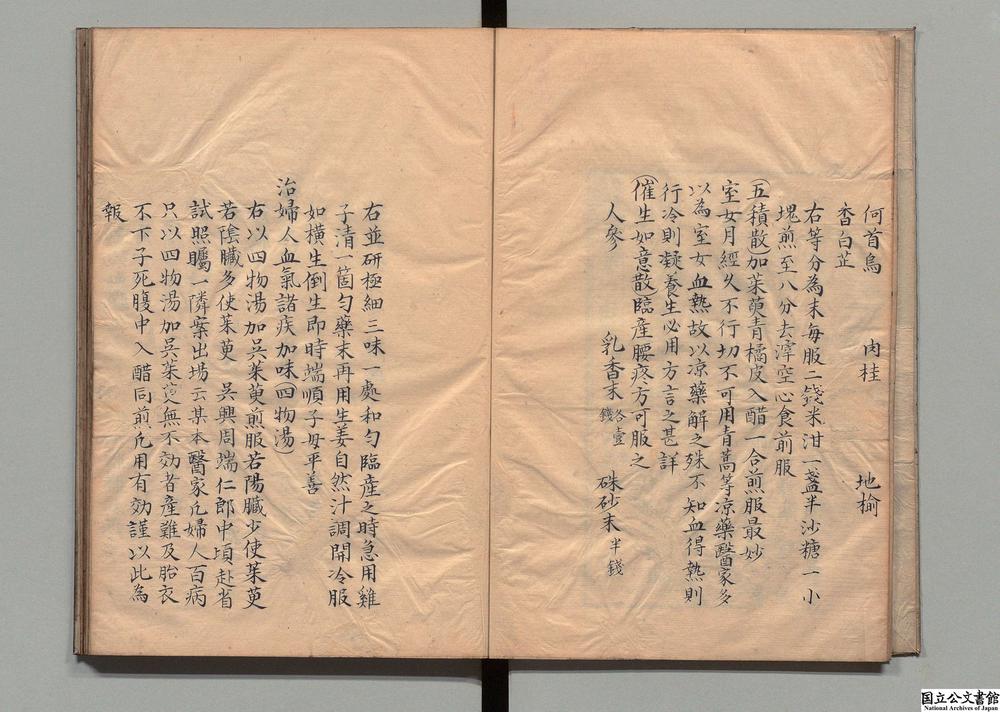 何首烏 肉桂 地榆
香白芷
右等分為末每服二錢米泔一盞半沙糖一小
塊煎至八分去滓空心食前服
五積散加茱萸青橘皮入醋一合煎服最妙
室女月經久不行切不可用青蒿等凉藥醫家多
以為室女血熱故以凉藥解之殊不知血得熱則
行冷則凝養生必用方言之甚詳
催生如意散臨産腰疼方可服之
人參 乳香末各壹錢 硃砂末半錢
右並研極細三味一處和勻臨産之時急用雞
子清一箇勻藥末再用生姜自然汁調開冷服
如橫生倒生即時端順子母平善
治婦人血氣諸疾加味四物湯
右以四物湯加吳茱萸煎服若陽臟少使茱萸
若陰臟多使茱萸 吳興周端仁郎中頃赴省
試照矚一隣案出場云某本醫家凢婦人百病
只以四物湯加吳茱萸無不効者産難及胎衣
不下子死腹中入醋同煎凢用有効謹以此為
報
国立公文書館
National Archives of Japan